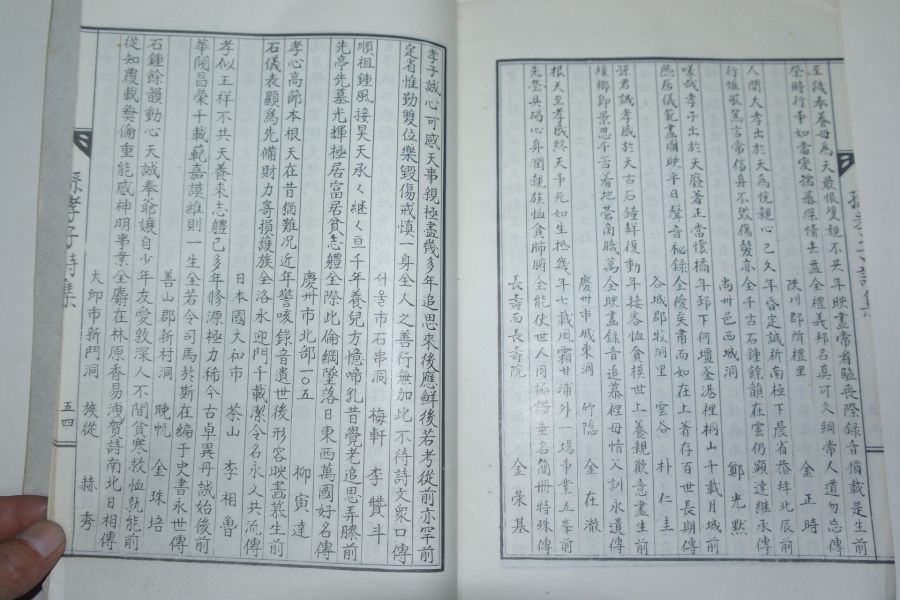 至誠奉養母為天最恨雙親不共年映畫常肴膳喪際錄音損載是生前
祭時行事如當愛孺慕深情去益全禮義邦名真可久綱常人道勿忘傳
陜川郡所禮里 金正時
人間大孝出於天為悅親心已久年昏定誠祈南極下晨省恭拜北辰前
行惟敬篤言常信身不毀傷髮亦全千古石鍾餘韻在雲仍顯達継承傳
尚州邑西城洞 鄭光默
嗟哉孝子出於天廢著正當懷橘年邳下何壇釜港裡桐山千載月城前
然居儀範畫圖映平日聲音秘錄全俊矣甫而如在上著存百世長期傳
谷城郡牧洞里 雲谷 朴仁圭
孫君誠孝感於天古石鐘鮮復動年接客恤貧模世上養親歡意畫生前
維鄉鄭景思不苦着地營南職萬全映畫錄音追慕裡母情父訓永遺傳
慶州市城東洞 竹隐 金在澈
根天至孝感終天事死如生抵幾年七載風霜甘浦外一場事業五峯前
先塋具碣心身潤親族恤貧肺腑全能使世人周揚譽垂名簡冊特殊傳
長壽西長壽院 金榮基
孝子誠心可感天事親極盡幾多年追思來後應鮮後若考從前亦罕前
定省惟勤雙位樂毀傷戒慎一身全人之善行無加此不待詩文衆口傳
서울市石串洞 梅軒 李贊斗
順祖鍾風接昊天承〱継〱亘千年養兒方憶啼乳昔覺老追思弄膝前
先亭先墓光輝極居富居貧志體全際此倫綱墜落日東西萬國好名傳
慶州市北部一〇五 柳寅達
孝心高節本根天在昔猶難况近年謦咳錄音遺世後形容映畵慕生前
石儀表顯為先備財力寄損護族全洛水迎門千載潔令名永久共流傳
日本國大和市 茶山 李相魯
孝似王祥不共天養來志軆已多年修源極力稀今古卓異丹誠始後前
華閥昌榮千載範嘉謨維則一生全若令司馬於斯在編于史書永世傳
善山郡新村洞 晚帆 金珠培
石鍾餘韻動心天誠奉爺孃自少年友愛敦深人不間貧寒救恤孰能前
從知覆載彛倫重能感神明事業全麝在林原香易洩賀詩南北日相傳
大邱市新門洞 族從 赫秀
孫孝子詩集
五四